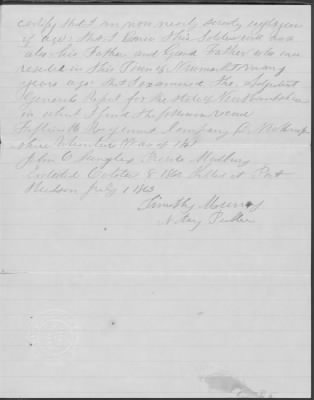 certify that I am now nearly seventy
of age that I knew this Soldier well and
also his Father and Grand Father who once
resided in this Town of Newmarket many
years ago that I examined the Adjutant
Generals Report for the State of New Hampshire
in which I find the following
Fifteenth Regiment Company
Volunteers War of 1861
John O Langley Madbury
Enlisted October 8 1862 Killed at Port
Hudson July 1 1863
Timothy Murray
Notary Public